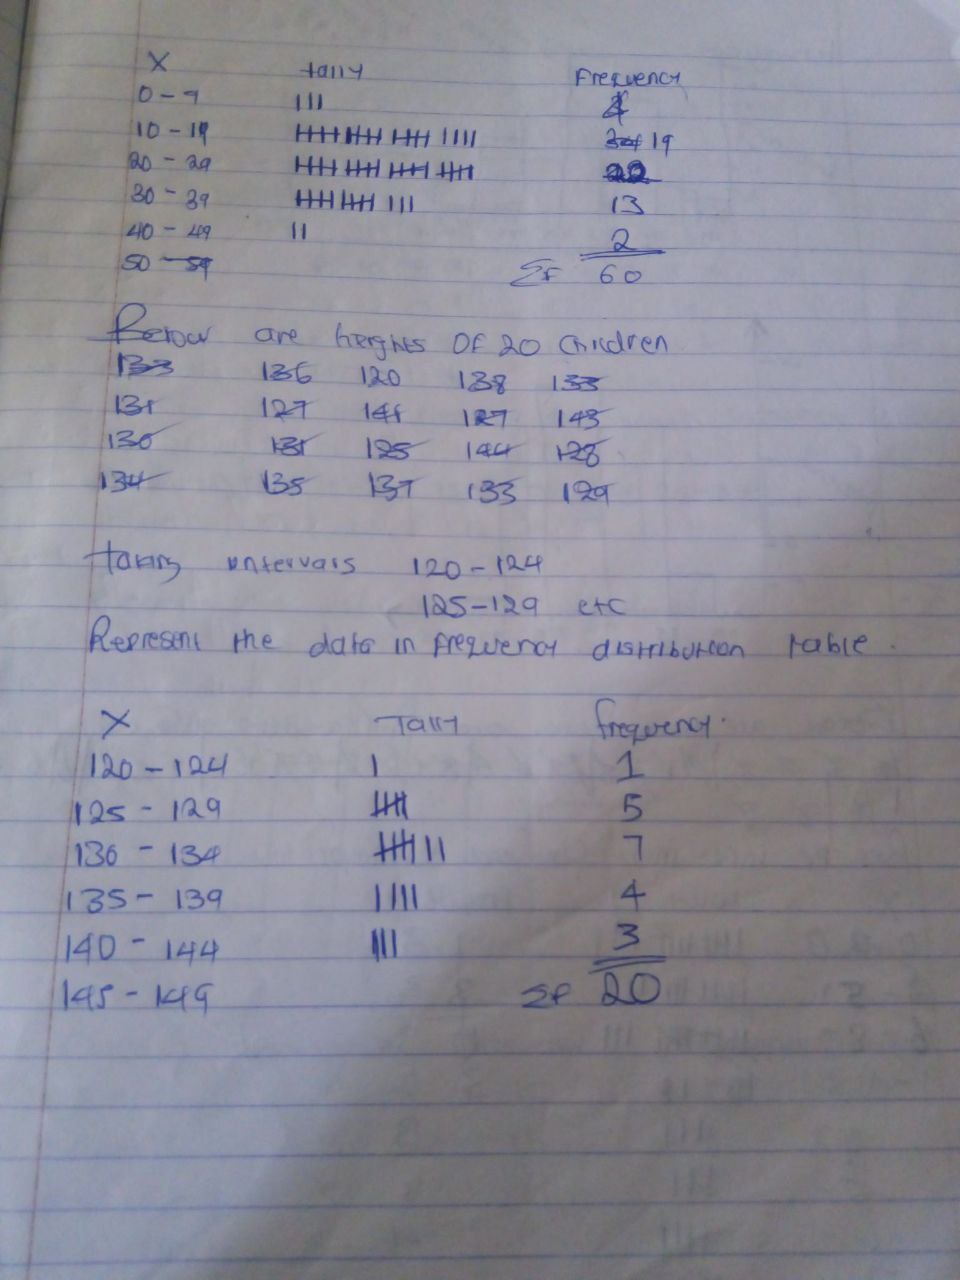 X tally Frequency
0 - 9 ||| 4
10 - 19 |||| |||| |||| |||| 19
20 - 29 |||| |||| |||| |||| 22
30 - 39 |||| |||| ||| 13
40 - 49 || 2
50 - 59 Σf 60
Below are heights OF 20 children
133 136 120 138 133
131 127 141 127 143
130 131 125 144 128
134 135 137 133 129
taking intervals 120 - 124
125 - 129 etc
Represent the data in frequency distribution table.
X Tally frequency.
120 - 124 | 1
125 - 129 |||| 5
130 - 134 |||| || 7
135 - 139 |||| 4
140 - 144 ||| 3
145 - 149 Σf 20